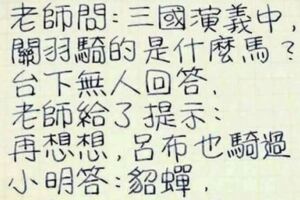 老師問:三國演義中,
關羽騎的是什麼馬?
台下無人回答.
老師給了提示:
再想想,呂布也騎過
小明答:貂蟬.